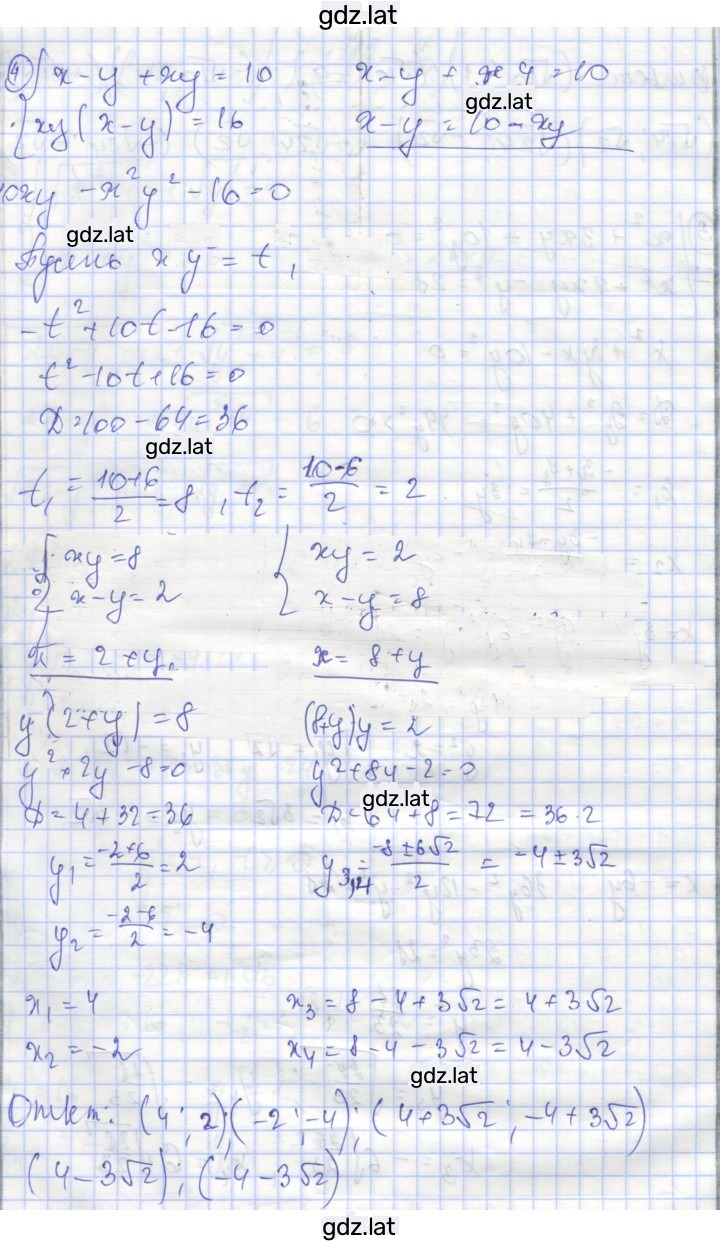 gdz.lat
4) { x - y + xy = 10    x - y + xy = 10
gdz.lat
{ xy (x - y) = 16    x - y = 10 - xy
10xy - x²y² - 16 = 0
gdz.lat
Пусть xy = t,
-t² + 10t - 16 = 0
t² - 10t + 16 = 0
D = 100 - 64 = 36
gdz.lat
t₁ = (10+6)/2 = 8, t₂ = (10-6)/2 = 2
{ xy = 8    { xy = 2
{ x - y = 2    { x - y = 8
x = 2 + y,    x = 8 + y
y(2+y) = 8    (8+y)y = 2
y² + 2y - 8 = 0    y² + 8y - 2 = 0
gdz.lat
D = 4 + 32 = 36    D = 64 + 8 = 72 = 36 · 2
y₁ = (-2+6)/2 = 2    y₃,₄ = (-8 ± 6√2)/2 = -4 ± 3√2
y₂ = (-2-6)/2 = -4
x₁ = 4    x₃ = 8 - 4 + 3√2 = 4 + 3√2
x₂ = -2    x₄ = 8 - 4 - 3√2 = 4 - 3√2
gdz.lat
Ответ: (4; 2); (-2; -4); (4 + 3√2; -4 + 3√2)
(4 - 3√2); (-4 - 3√2)
gdz.lat